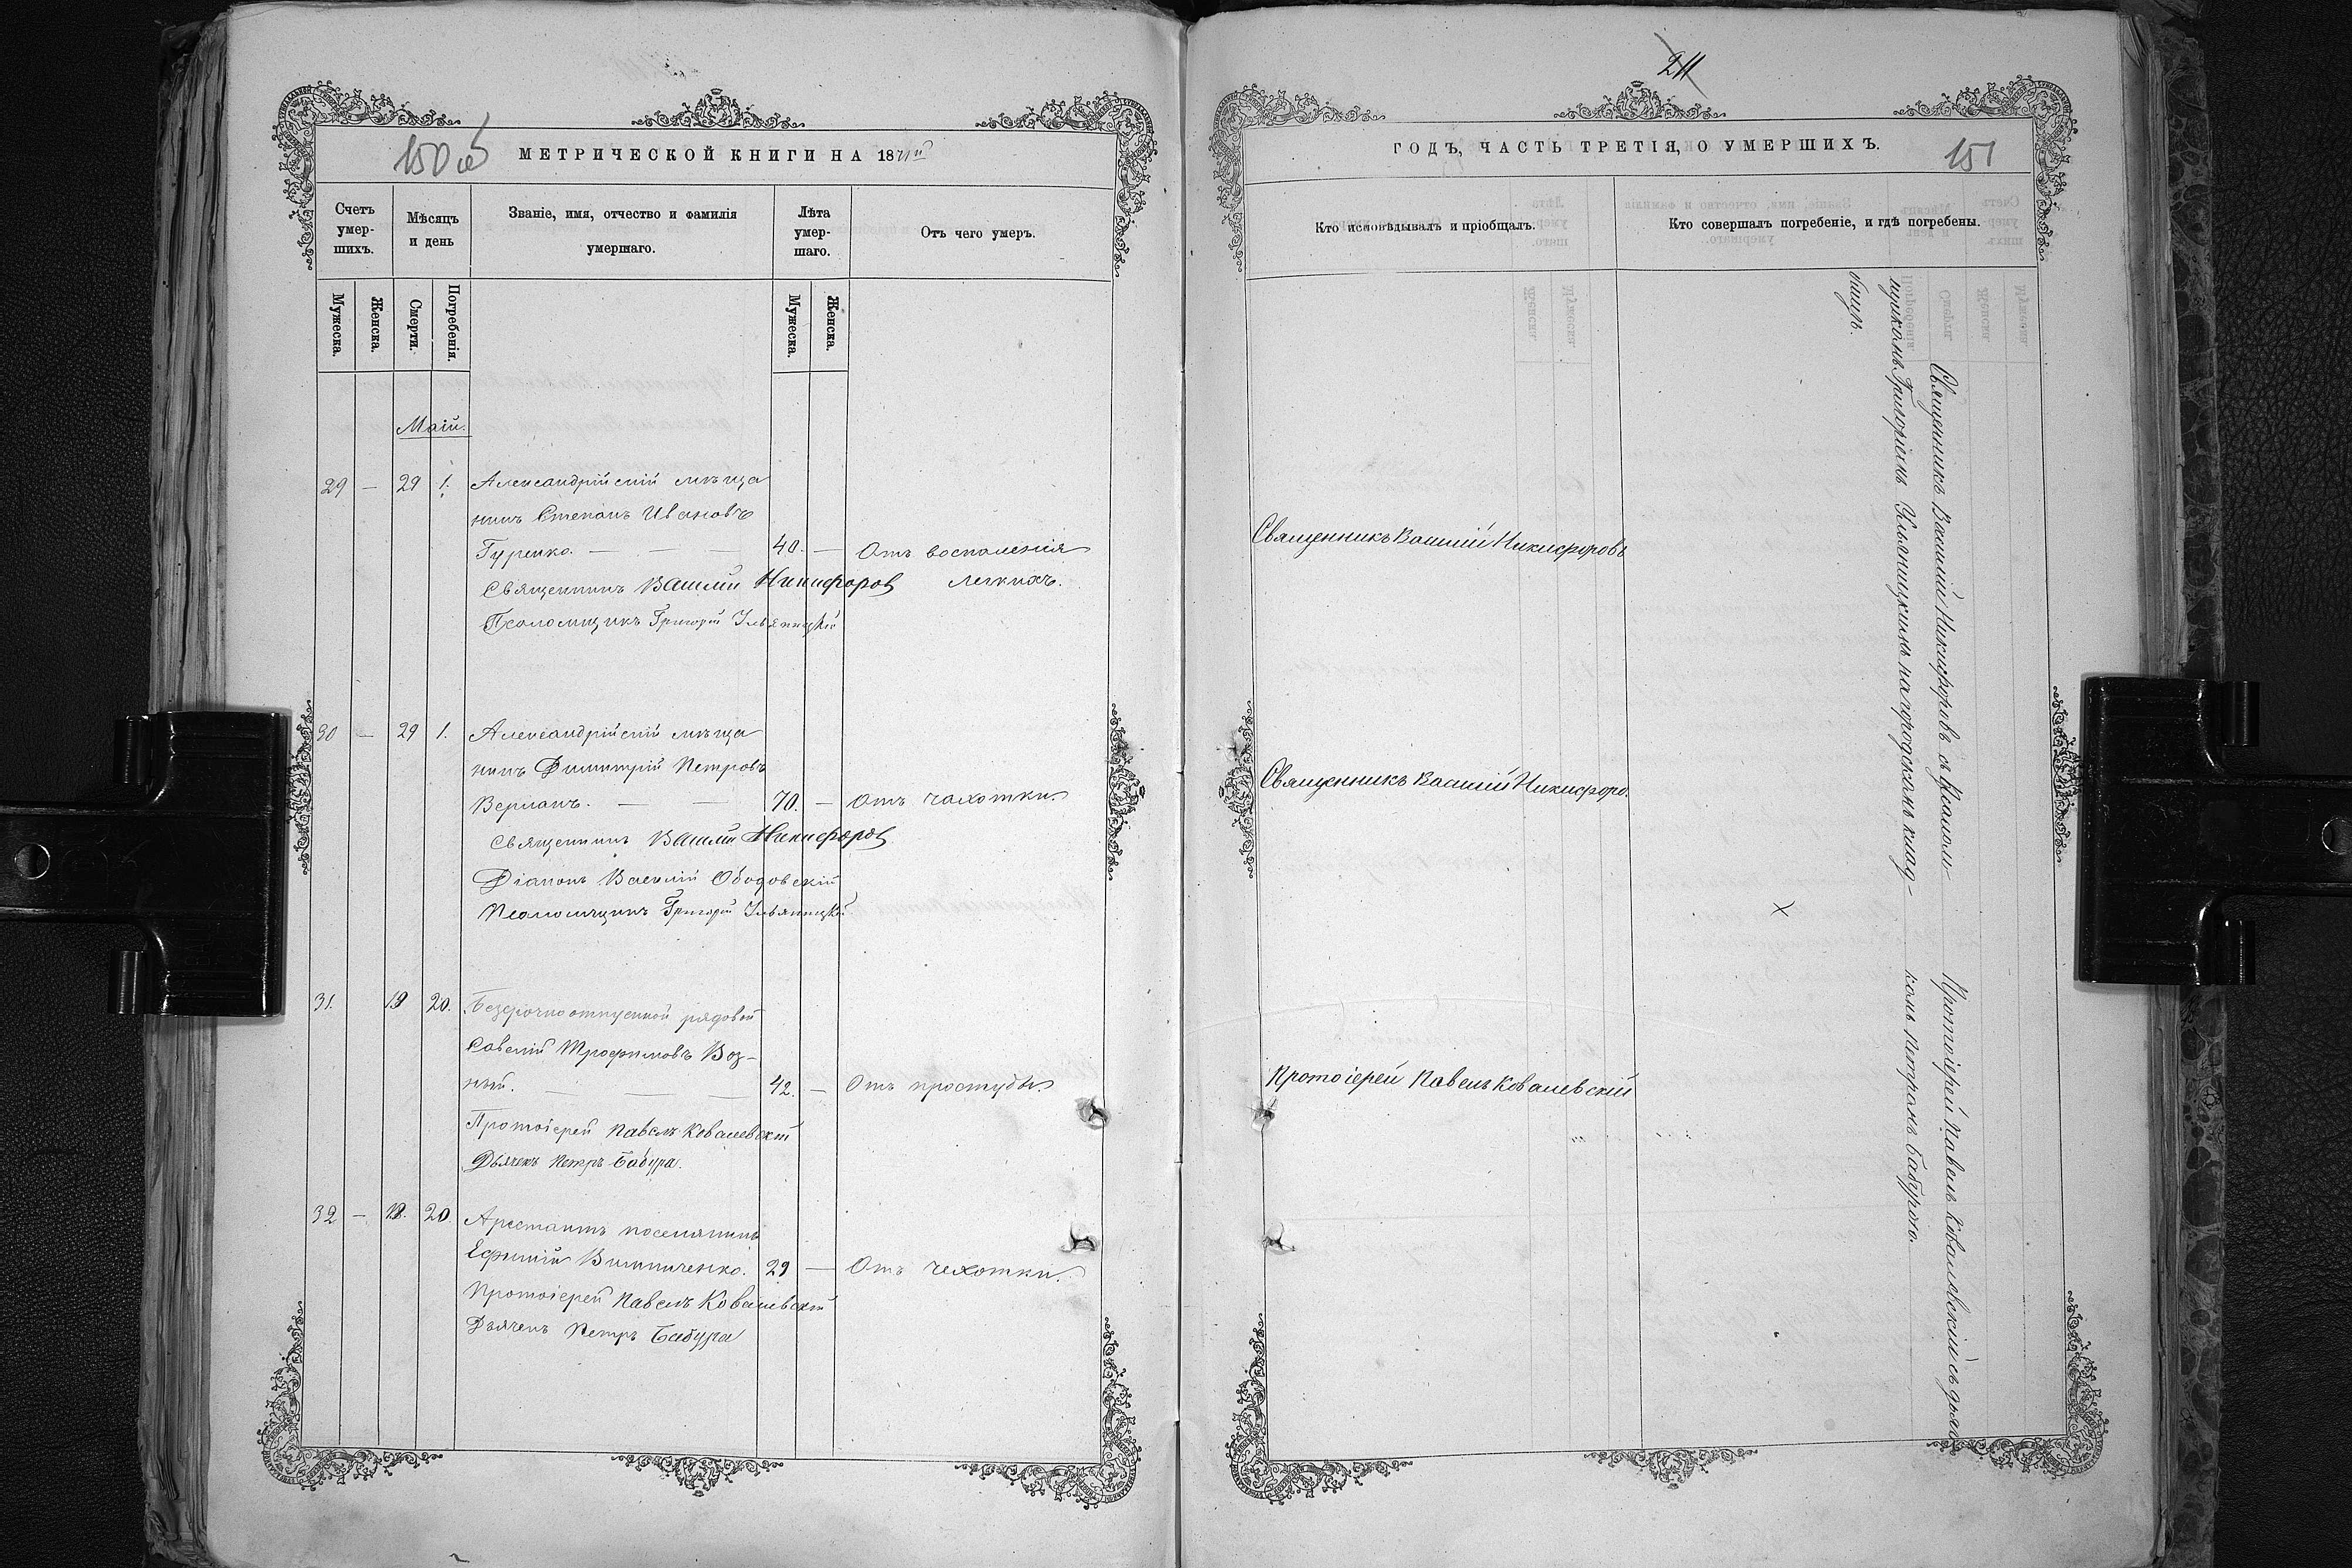 150 об
МЕТРИЧЕСКОЙ КНИГИ НА 1871й
Счетъ умершихъ.
Мѣсяцъ и день
Званіе, имя, отчество и фамилія умершаго.
Лѣта умершаго.
Отъ чего умеръ.
Мужеска.
Женска.
Смерти.
Погребенія.
Мужеска.
Женска.
Маій.
29 — 29 1. Александрійскій мѣща
нинъ Степанъ Ивановъ
Гуренко. — — — 40. — Отъ воспаленія
Священникъ Василій Никифоров легкихъ.
Псаломщикъ Григорій Ульяницкій
30 — 29 1. Александрійскій мѣща
нинъ Димитрій Петровъ
Верланъ. — — 70. — Отъ чахотки.
Священникъ Василій Никифоров
Діаконъ Василій Ободовскій
Псаломщикъ Григорій Ульяницкій
31. 19 20. Безсрочноотпускной рядовой
Савелій Трофимовъ Воз-
ный. — — — 42. — Отъ простуды.
Протоіерей Павелъ Ковалевскій
Дьячекъ Петръ Бабура.
32 — 18. 20. Арестантъ поселянинъ
Ефимій Винниченко. 29 — Отъ чехотки.
Протоіерей Павелъ Ковалевскій
Дьячекъ Петръ Бабура
211
ГОДЪ, ЧАСТЬ ТРЕТІЯ, О УМЕРШИХЪ.
151
Кто исповѣдывалъ и пріобщалъ.
Кто совершалъ погребеніе, и гдѣ погребены.
Священникъ Василій Никифоровъ
Священникъ Василій Никифоро.
Протоіерей Павелъ Ковалевскій
Священникъ Василій Никифоровъ съ Псалом-
щикомъ Григоріемъ Ульяницкимъ на городскомъ клад-
бищѣ.
Протоіерей Павелъ Ковалевскій съ дьяч-
комъ Петромъ Бабурою.